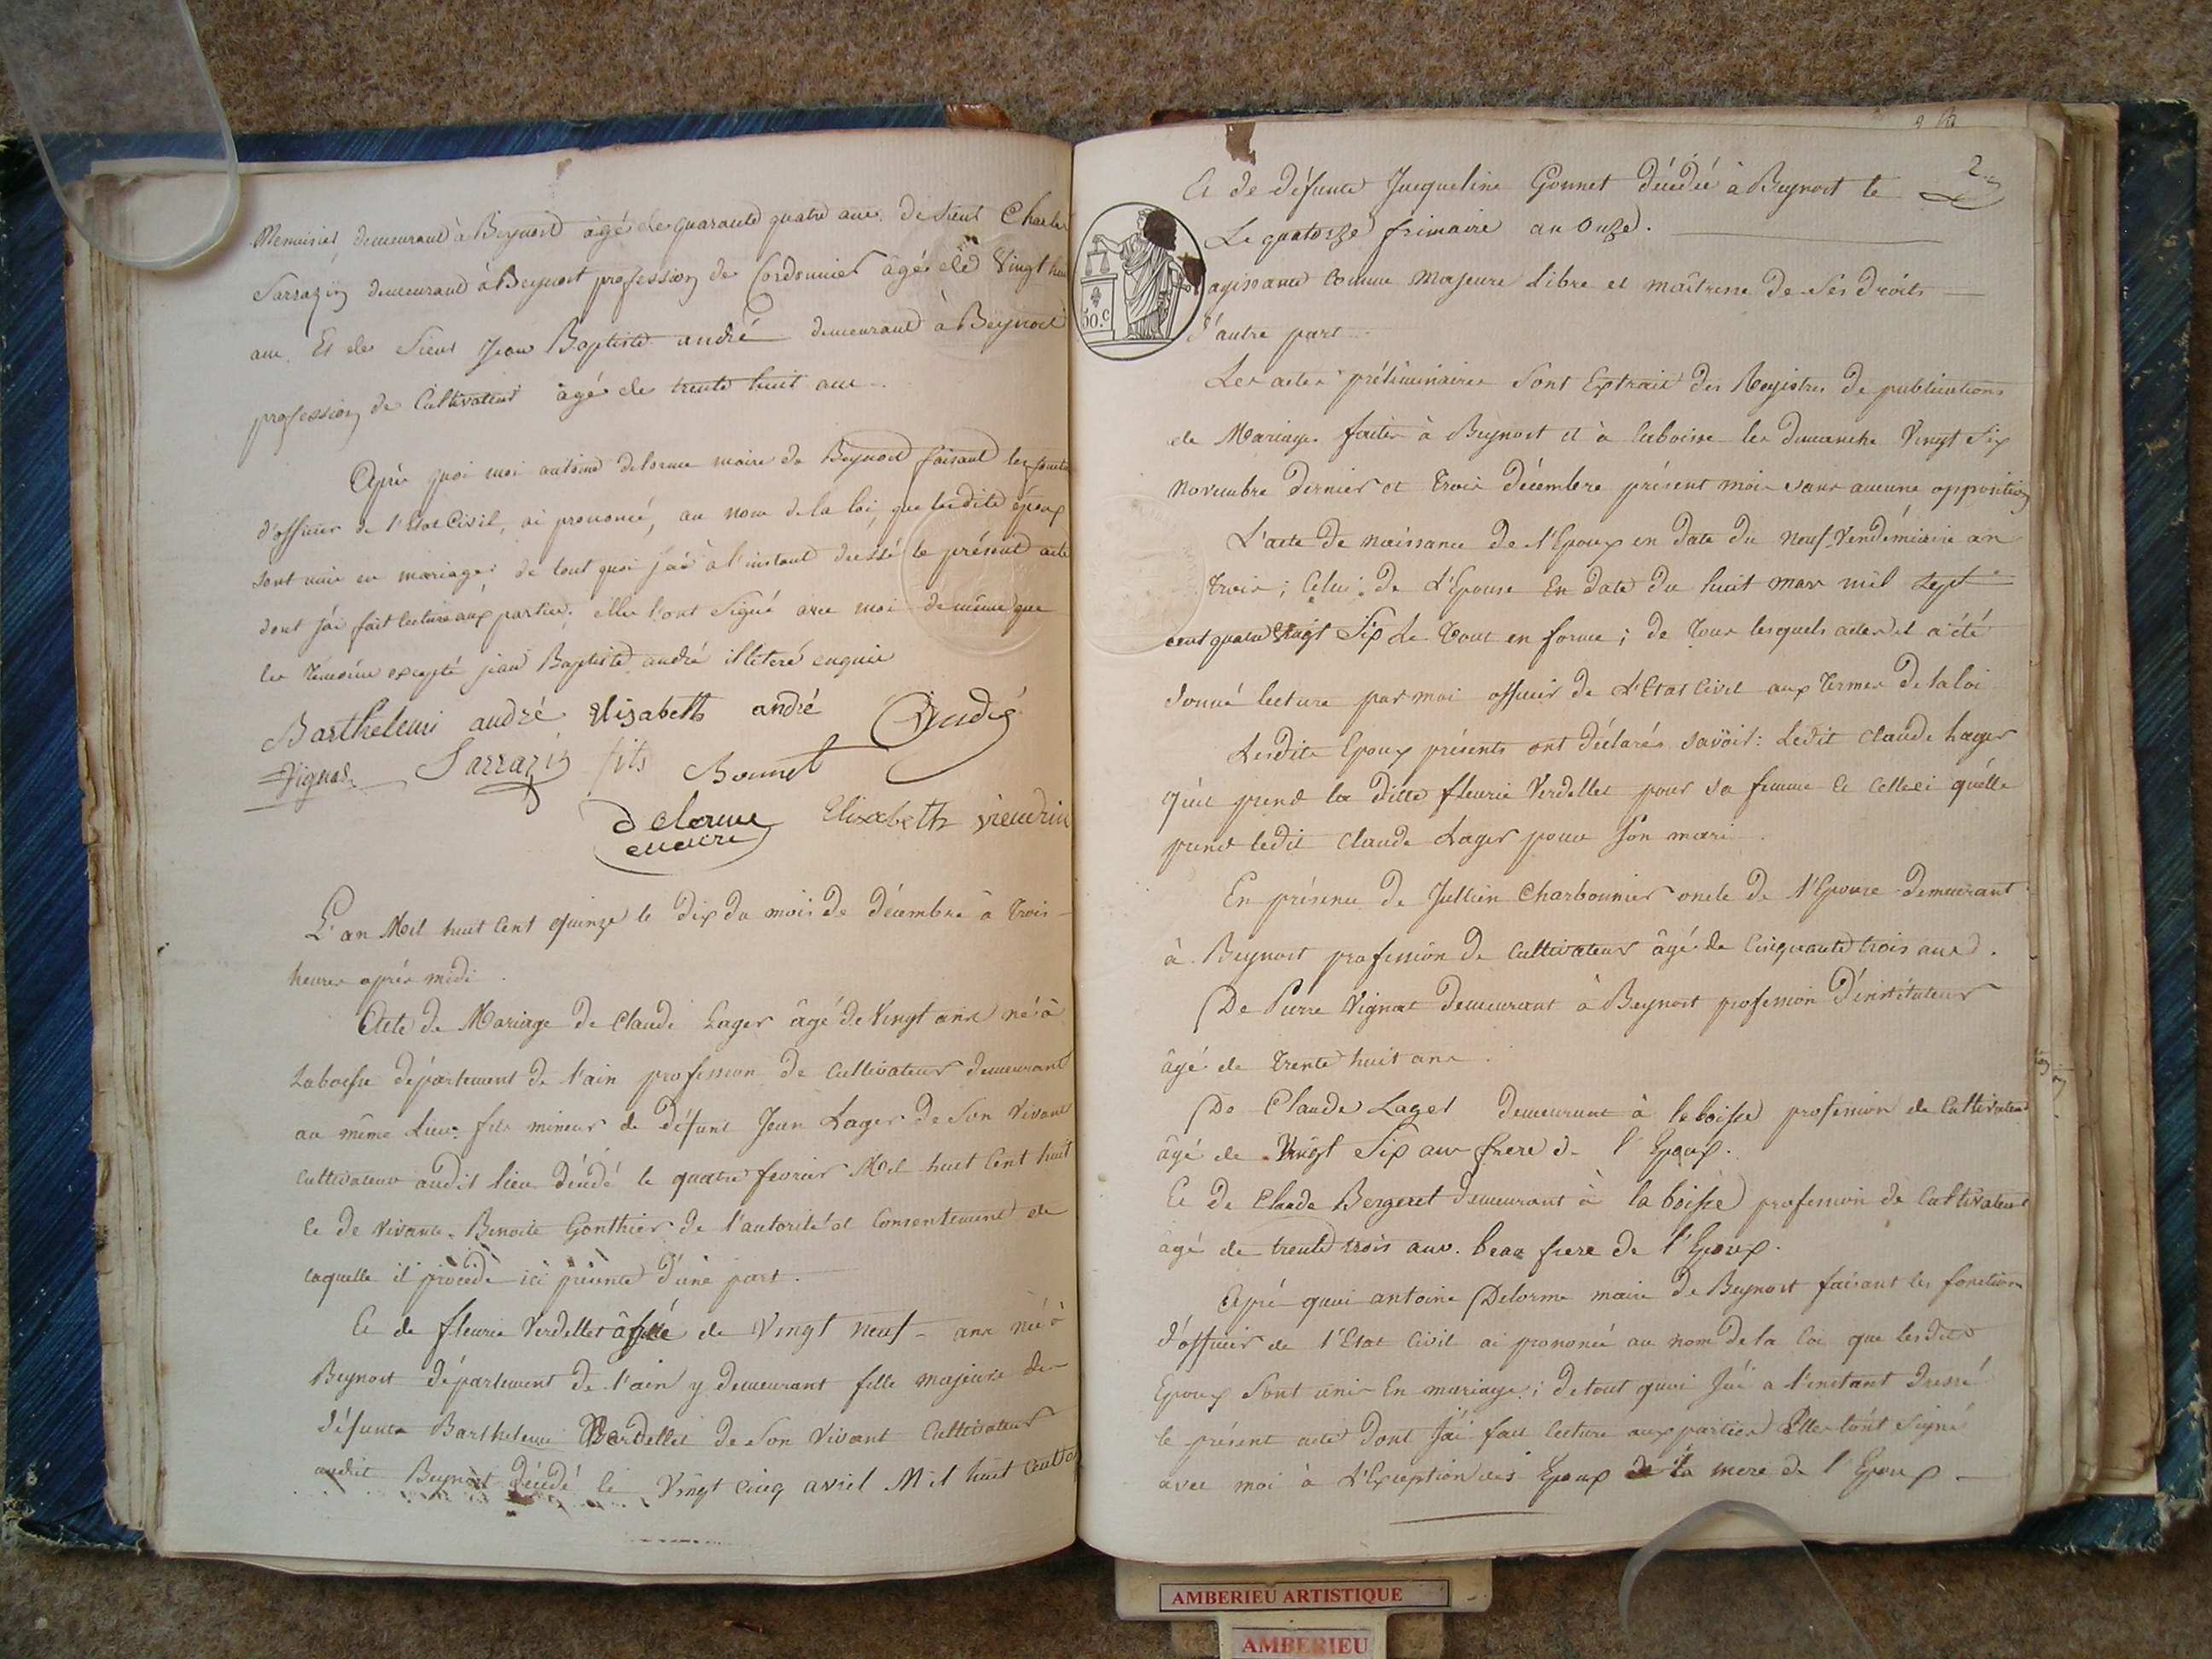 Menuisier, demeurant à Beynost âgé de quarante quatre ans. de Sieur Charles
Sarrazin demeurant à Beynost profession de Cordonnier âgé de Vingt huit
ans. Et de Sieur Jean Baptiste andré demeurant à Beynost
profession de Cultivateur âgé de trente huit ans.
Après quoi moi antoine delorme maire de Beynost faisant les fonctions
d'officier de l'Etat Civil, ai prononcé, au nom de la loi, que lesdits époux
sont unis en mariage; de tout quoi j'ai à l'instant dressé le présent acte
dont j'ai fait lecture aux parties; elles l'ont Signé avec moi de même que
les témoins excepté jean Baptiste andré illiteré enquis
Barthelemi andré Elisabeth andré andré
Vignat Sarrazin fils Bonnet
Delorme Elisabeth
maire
L'an Mil huit Cent quinze le dix du mois de décembre à trois
heures après midi.
Acte de Mariage de Claude Lager âgé de Vingt ans né à
Laboisse département de l'ain profession de Cultivateur demeurant
au même Lieu fils mineur de défunt Jean Lager de Son Vivant
Cultivateur audit lieu décédé le quatre fevrier Mil huit Cent huit
Et de vivante Benoite Gonthier de l'autorité et Consentement de
laquelle il procède ici présente d'une part.
Et de fleurie Verdellet âgée de Vingt neuf ans née à
Beynost département de l'ain y demeurant fille majeure de
défunt Barthelemi Verdellet de Son Vivant Cultivateur
audit Beynost décédé le Vingt cinq avril Mil huit Cent
2
Et de défunte Jacqueline Gonnet décédée à Beynost le
Le quatorze frimaire an Onze.
50.c
agissante Comme Majeure libre et maîtresse de Ses droits
d'autre part
Les actes préliminaires Sont Extrait des Registres de publications
de Mariages faites à Beynost et à laboisse les dimanche Vingt Six
Novembre dernier et trois décembre présent mois sans aucune opposition
L'acte de naissance de l'Epoux en date du neuf Vendémiaire an
trois; Celui de L'Epouse En date du huit mars mil Sept
cent quatre Vingt Six Le Tout en forme; de tous lesquels actes il a été
donné lecture par moi officier de L'Etat Civil aux termes de la loi
Lesdits Epoux présents ont déclarés savoir: Ledit Claude Lager
qu'il prend la ditte fleurie Verdellet pour sa femme Et Celleci qu'elle
prend ledit Claude Lager pour Son mari
En présence de Jullien Charbonnier oncle de l'Epouse demeurant
à Beynost profession de Cultivateur âgé de Cinquante trois ans.
De Pierre Vignat demeurant à Beynost profession D'instituteur
âgé de Trente huit ans.
De Claude Lager demeurant à laboisse profession de Cultivateur
âgé de Vingt Six ans frere de l'Epoux.
Et De Claude Bergeret demeurant à la boisse profession de Cultivateur
âgé de trente trois ans. beau frere de l'Epoux.
Après quoi antoine Delorme maire de Beynost faisant les fonctions
d'officier de l'Etat Civil ai prononcé au nom de la loi que lesdits
Epoux Sont unis En mariage; de tout quoi J'ai a l'instant dressé
le présent acte dont J'ai fait lecture aux parties Elles l'ont Signé
avec moi à L'Exception des Epoux de la mere de l'Epoux
AMBERIEU ARTISTIQUE
AMBERIEU